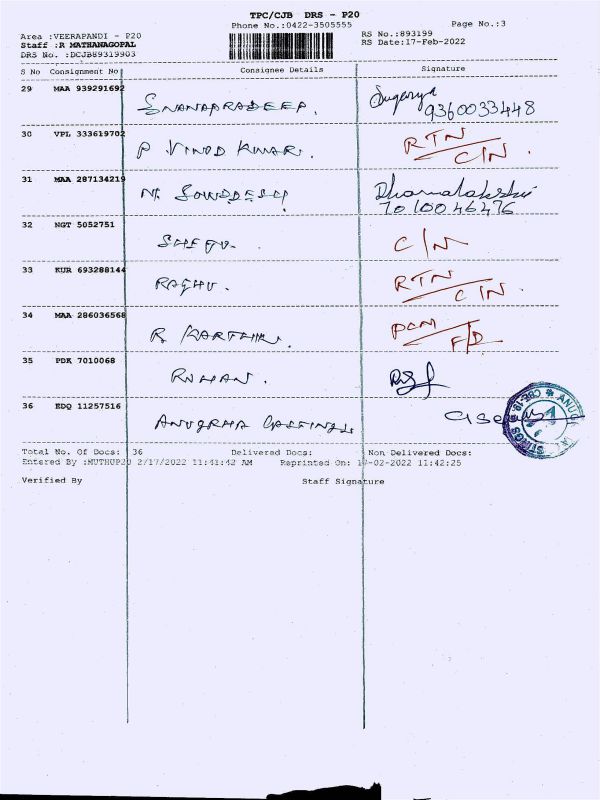 TPC/CJB DRS - P20
Phone No.:0422-3505555
Page No.:3
Area :VEERAPANDI - P20
RS No.:893199
Staff :R MATHANAGOPAL
RS Date:17-Feb-2022
DRS No. :DCJB89319903
S No Consignment No Consignee Details Signature
29 MAA 939291692
9360033448
30 VPL 333619702 P VINOD KUMAR. RTN
C/N.
31 MAA 287134219
7010046476
32 NGT 5052751 C/N
33 KUR 693288144 RAGHU. RTN
C/N.
34 MAA 286036568 R KARTHIK. PCM
F/D
35 PDK 7010068 ROHAN.
36 EDQ 11257516 ANUGRHA CASTINGS
Total No. Of Docs: 36 Delivered Docs: Non Delivered Docs:
Entered By :MUTHUP20 2/17/2022 11:41:42 AM Reprinted On: 17-02-2022 11:42:25
Verified By Staff Signature